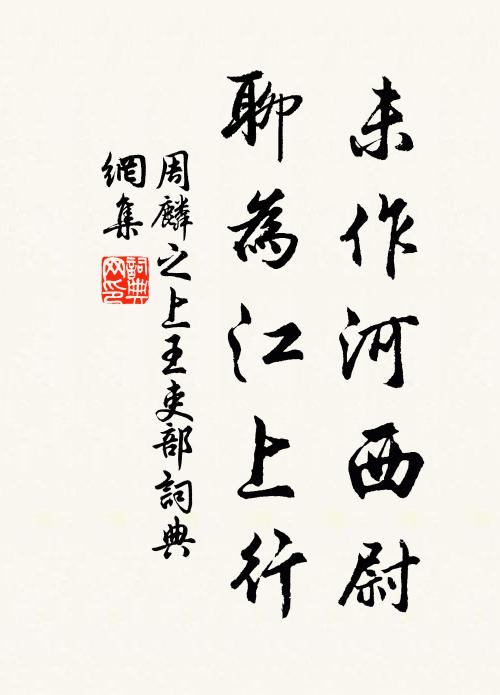 未作河西尉
聊為江上行
周麟之上王吏部詞典
網集
詞典
网印